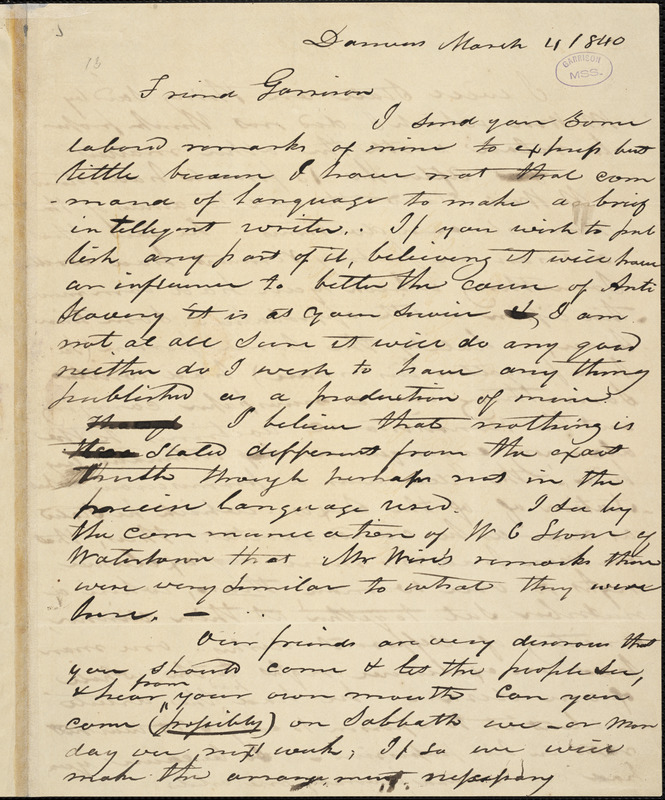 Danvers March 4 1840
GARRISON
MSS.
Friend Garrison
I send you some
labord remarks of mine to express but
little because I have not that com
-mand of language to make a brief
intelligent writer. If you wish to pub
lish any part of it, believing it will have
an influence to better the cause of Anti
Slavery it is at your Servic I am
not at all Sure it will do any good
neither do I wish to have any thing
published as a production of mine.
Though I believe that nothing is
Stated different from the exact
truth though perhaps not in the
precise language used. I see by
the communication of W C Stone of
Watertown that Mr Wise's remarks there
were very similar to what they were
here. —
Our friends are very desirous that
you should come & let the people see,
& hear from your own mouth Can you
come (possibly) on Sabbath eve - or Mon
day eve next week; If so we will
make the arrangement nessessary